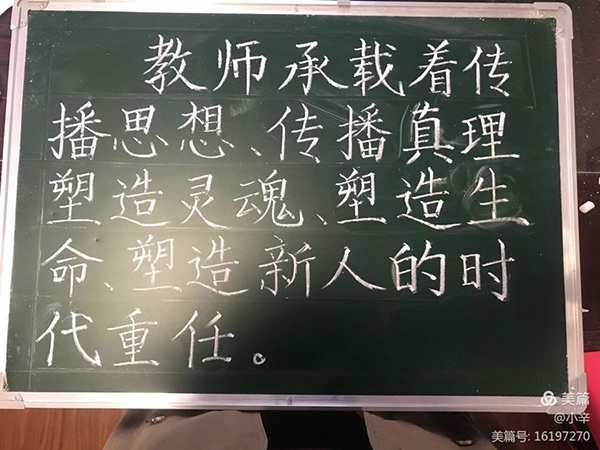 教师承载着传
播思想、传播真理
塑造灵魂、塑造生
命、塑造新人的时
代重任。
美篇
@小辛
美篇号: 16197270